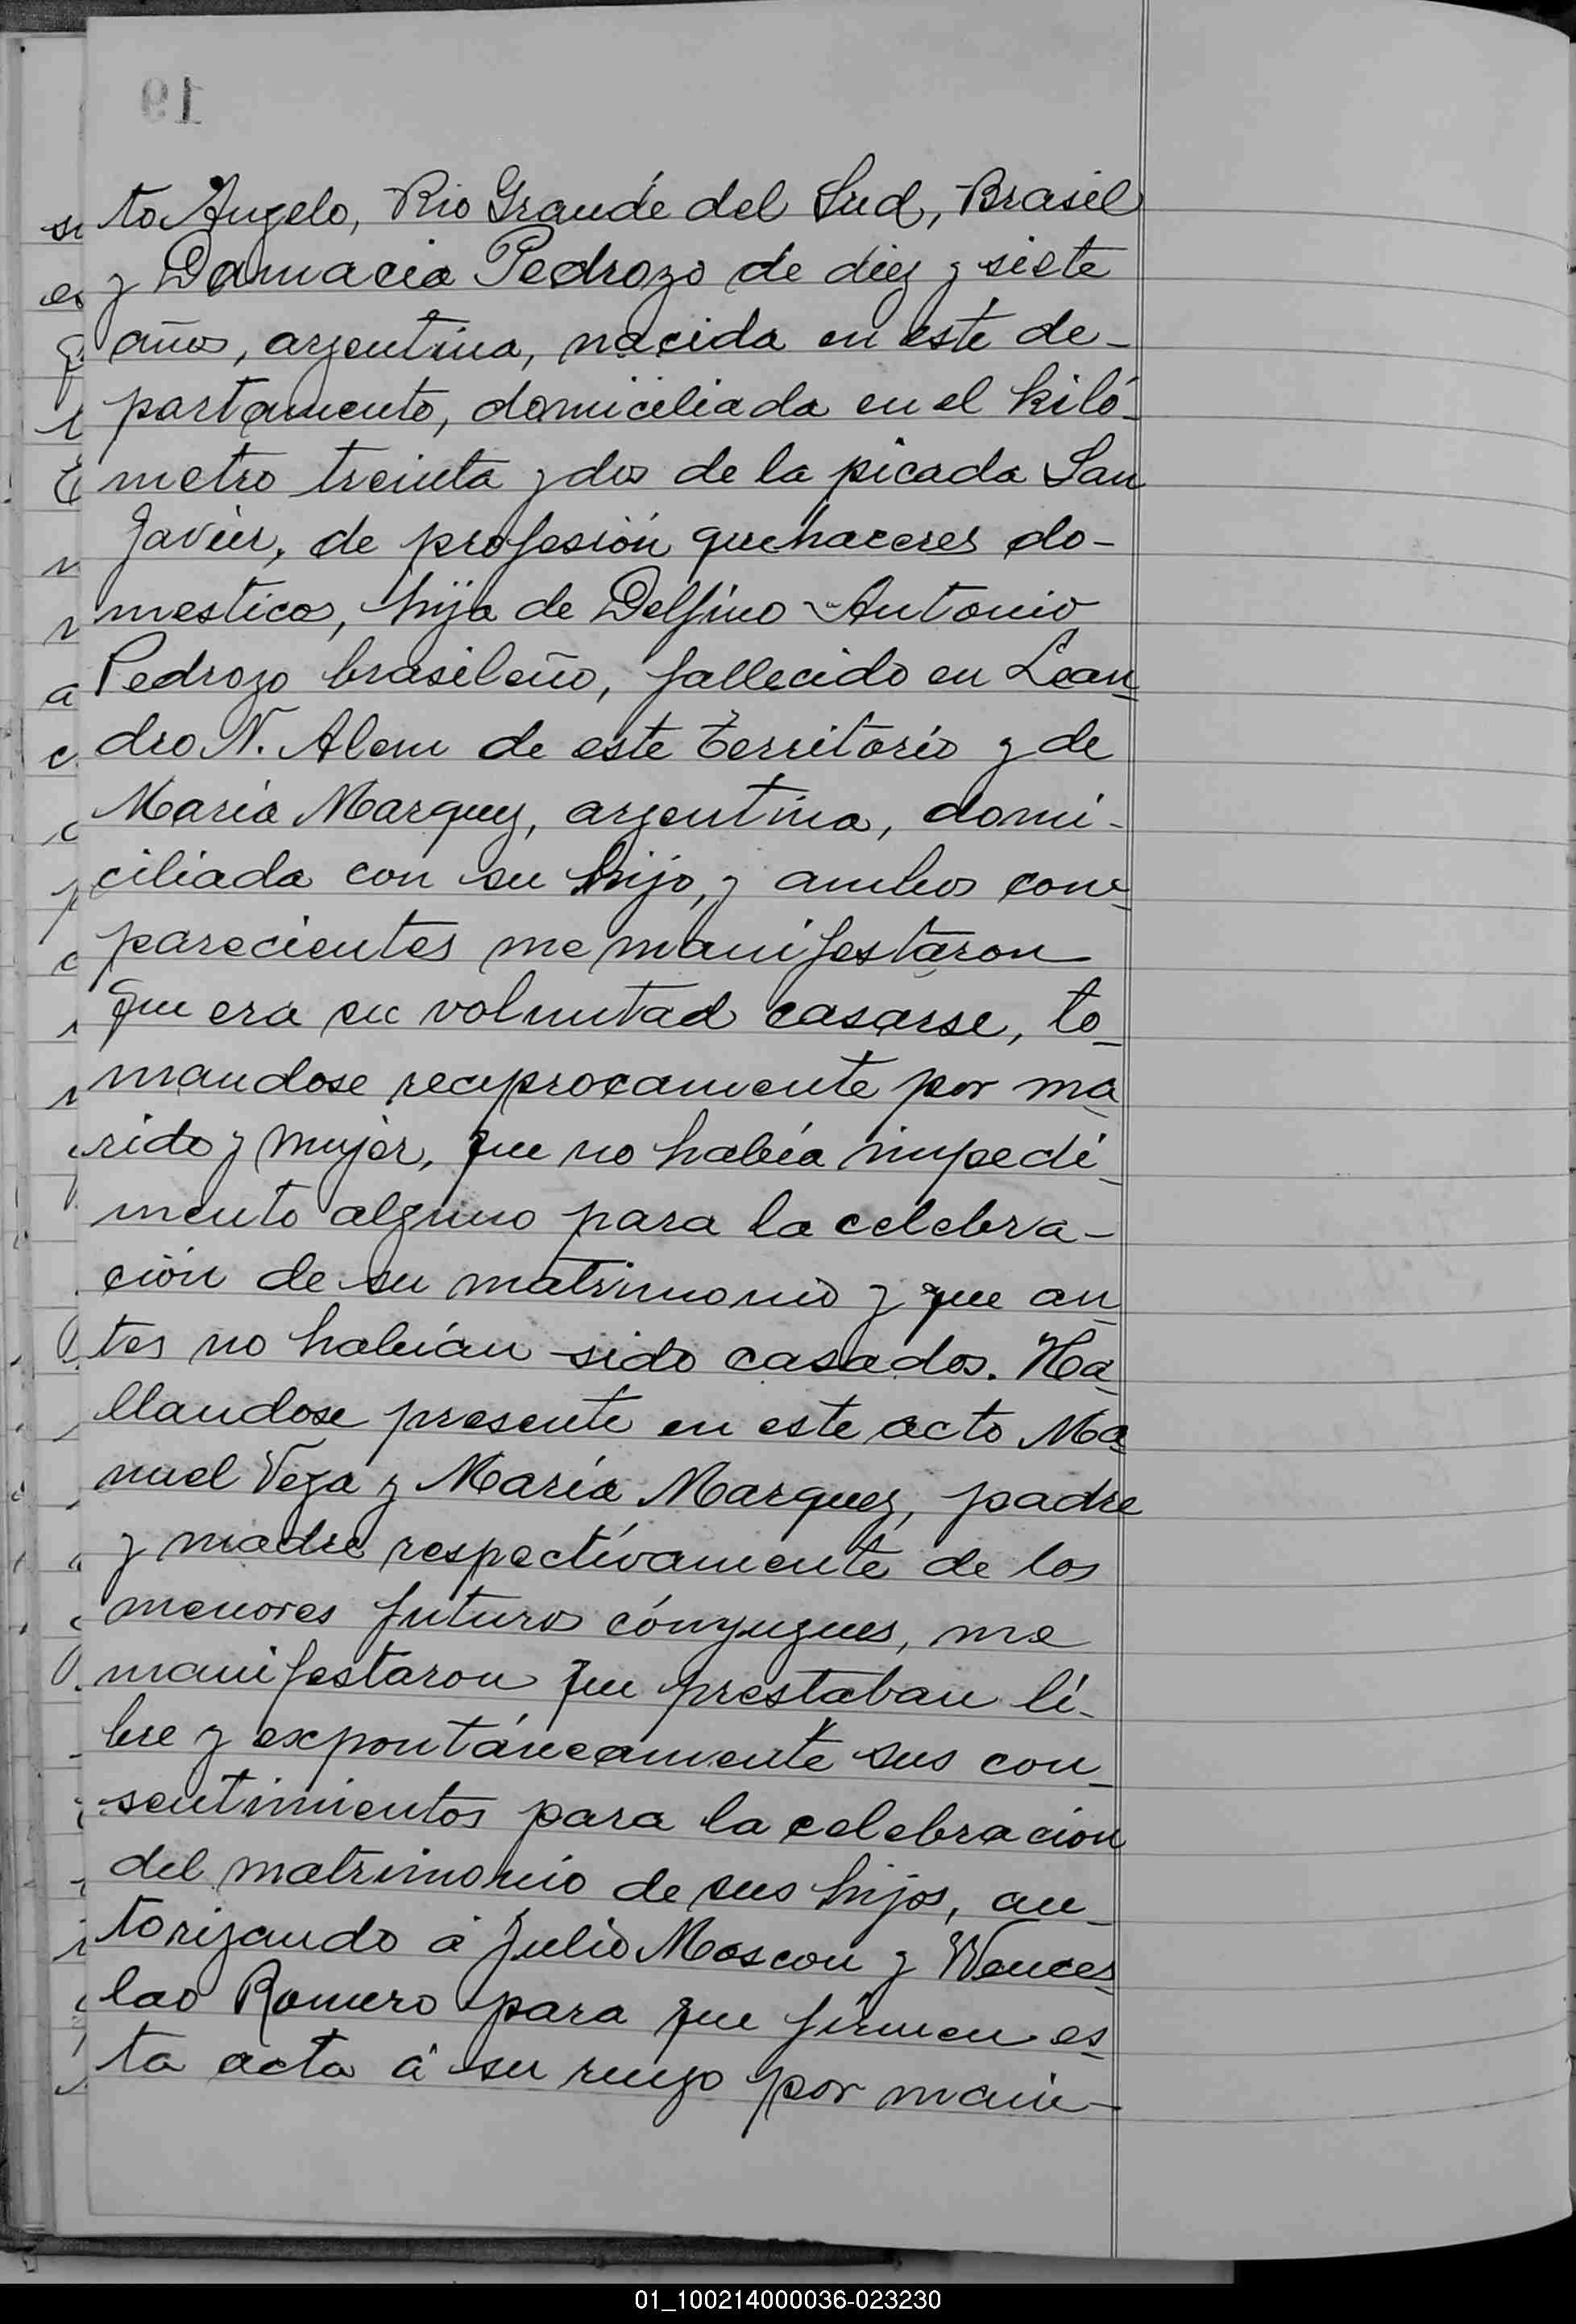 19
to Angelo, Rio Grande del Sud, Brasil
y Damacia Pedrozo de diez y siete
años, argentina, nacida en este de-
partamento, domiciliada en el kiló-
metro treinta y dos de la picada San
Javier, de profesión quehaceres do-
mesticos, hija de Delfino Antonio
Pedrozo brasileño, fallecido en Lean-
dro N. Alem de este territorio y de
María Marquez, argentina, domi-
ciliada con su hija, y ambos com-
parecientes me manifestaron
que era su voluntad casarse, to-
mandose reciprocamente por ma-
rido y mujer, que no había impedi-
mento alguno para la celebra-
ción de su matrimonio y que an-
tes no habían sido casados. Ha-
llandose presente en este acto Ma-
nuel Vega y María Marquez, padre
y madre respectívamente de los
menores futuros cónyugues, me
manifestaron que prestaban li-
bre y expontáneamente sus con-
sentimientos para la celebración
del matrimonio de sus hijos, au-
torizando á Julio Moscon y Wences-
lao Romero para que firmen es-
ta acta á su ruego por mani-
01_100214000036-023230